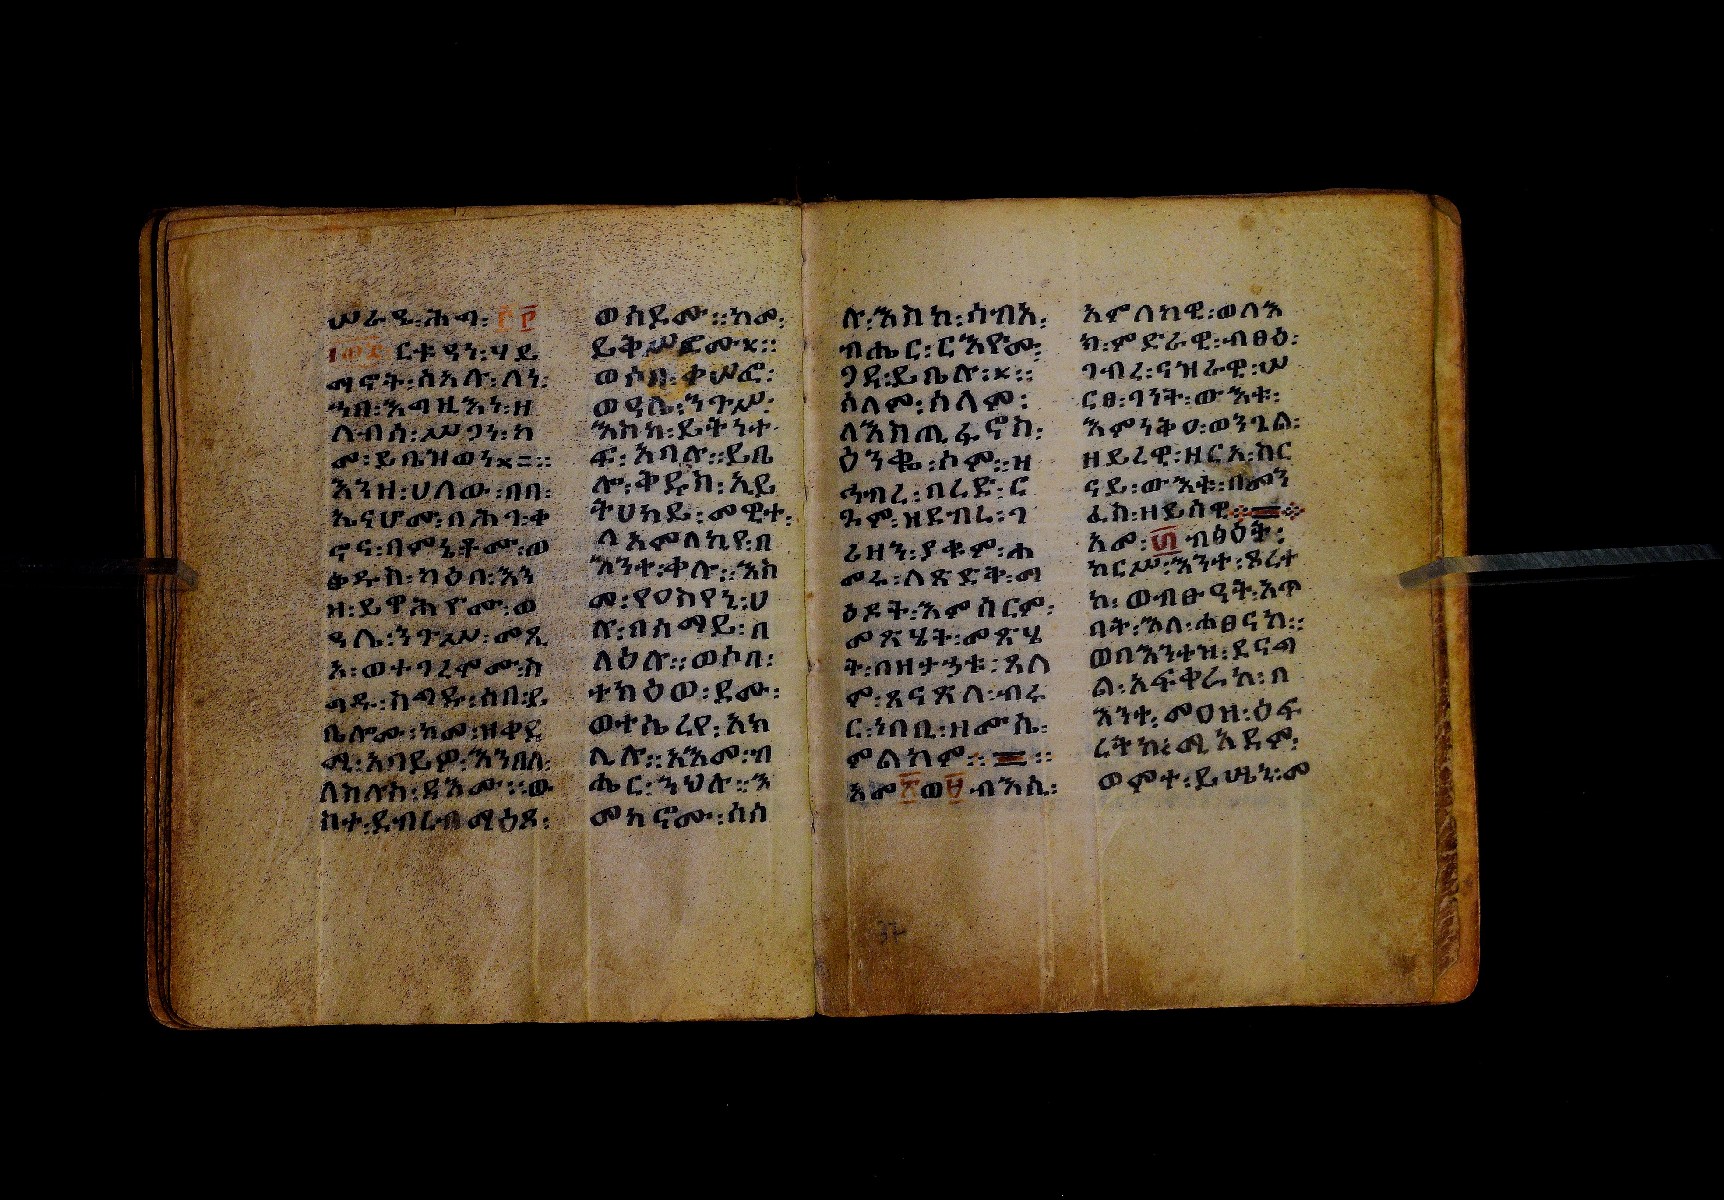 ሠራዊ፡ሕግ፡
ርቱዓን፡ሃይ
ማኖት፡ሰአሉ፡ለነ፡
ኀበ፡እግዚእነ፡ዘ
ለብሰ፡ሥጋነ፡ከ
መ፡ይቤዝወነ፨
እንዘ፡ሀለው፡በበ፡
በሕግ፡ቀ
ኖና፡በምኔቶሙ፡ወ
ቅዱስ፡ካዕበ፡እን
ዘ፡ይዋሕዮሙ፡ወ
ዳሴ፡ንጉሥ፡መጺ
አ፡ወተጋረሞሙ፡ሰ
ገዱ፡ሰገዱ፡ሰበ፡ይ
ቤሎሙ፡ከመ፡ዝቀዳ
ሚ፡አባይዎ፡እንበለ፡
ለክሉስ፡ደእሙ፡፡ው
ስተ፡ደብረ፡ብ
ወሰይሙ፡፡ከመ፡
ይቅሥፎሙ፡፡
ወሶበ፡ቀሠፎ፡
ወዓሴ፡ንጉሥ፡
እስከ፡ይትነተ
ፍ፡አባሉ፡፡ይቤ
ሎ፡ቅዱስ፡ኢይ
ትሀከይ፡መዊተ፡
ለአምላኪየ፡በ
እንተ፡ቀሉ፡፡እስ
መ፡የዐስየኒ፡ሀ
ሉ፡በሰማይ፡በ
ለዕሉ፡፡ወሶበ፡
ተክዕወ፡ደሙ፡
ወተኬረየ፡አክ
ሊሉ፡፡አእመ፡ብ
ሔር፡ንህሉ፡፡እ
መካኖሙ፡ሰሰ
ሉ፡እስከ፡ሳብአ፡
ብሔር፡ርእዮሙ
ጓዳ፡ይቤሉ፡፡
ሰላም፡ሰላም፡
ለእስጢፋኖስ፡
ዕንቈ፡ሶም፡፡ዝ
ኀብረ፡በረድ፡ሮ
ዓም፡ዝደብሪ፡ገ
ሪዘን፡ያቁም፡ሐ
መሩ፡ለጽድቅ፡ማ
ዕዶት፡እምሰርም፡
መጽሄት፡መጽሄ
ት፡በዘታኃቱ፡ጸለ
ም፡ጸናጽለ፡ብሩ
ር፡ነበቢ፡ዘሙሴ፡
ምልከም፡፡
አመ፳ወ፱ብእሲ፡
አምላካዊ፡ወለእ
ክ፡ምድራዊ፡ብፀዕ፡
ገብረ፡ናዝራዊ፡ሠ
ርፀ፡ገነት፡ውእቱ፡
እምነቅዐ፡ወንጌል፡
ዘይረዊ፡ዘርአ፡ከር
ናይ፡ውእቱ፡በመን
ፈስ፡ዘይሰዊ
አመ፡፴ብፅዕት፡
ከርሥ፡እንተ፡ጾረተ
ከ፡ወብፁዓት፡አጥ
ባት፡እለ፡ሐፀናከ፡፡
ወበእንተዝ፡ደናግ
ል፡አፍቀራከ፡በ
እንተ፡መዐዘ፡ዕፍ
ረትከ፡ሚአዳም፡
ወምተ፡ይሤኒ፡መ
37